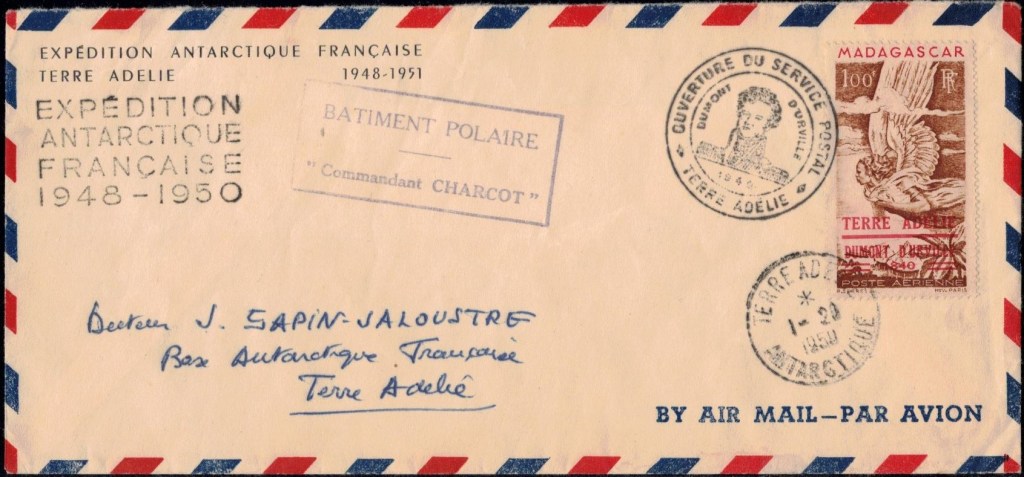 EXPÉDITION ANTARCTIQUE FRANÇAISE
TERRE ADELIE 1948-1951
EXPÉDITION
ANTARCTIQUE
FRANÇAISE
1948-1950
BATIMENT POLAIRE
"Commandant CHARCOT"
OUVERTURE DU SERVICE POSTAL
DUMONT D'URVILLE
TERRE ADÉLIE
MADAGASCAR
100F
RF
TERRE ADÉLIE
DUMONT D'URVILLE
1840
POSTE AÉRIENNE
HÉLIO. PARIS
TERRE ADÉLIE
*
1-20
1950
ANTARCTIQUE
Docteur J. SAPIN-JALOUSTRE
Base Antarctique Française
Terre Adelie
BY AIR MAIL—PAR AVION